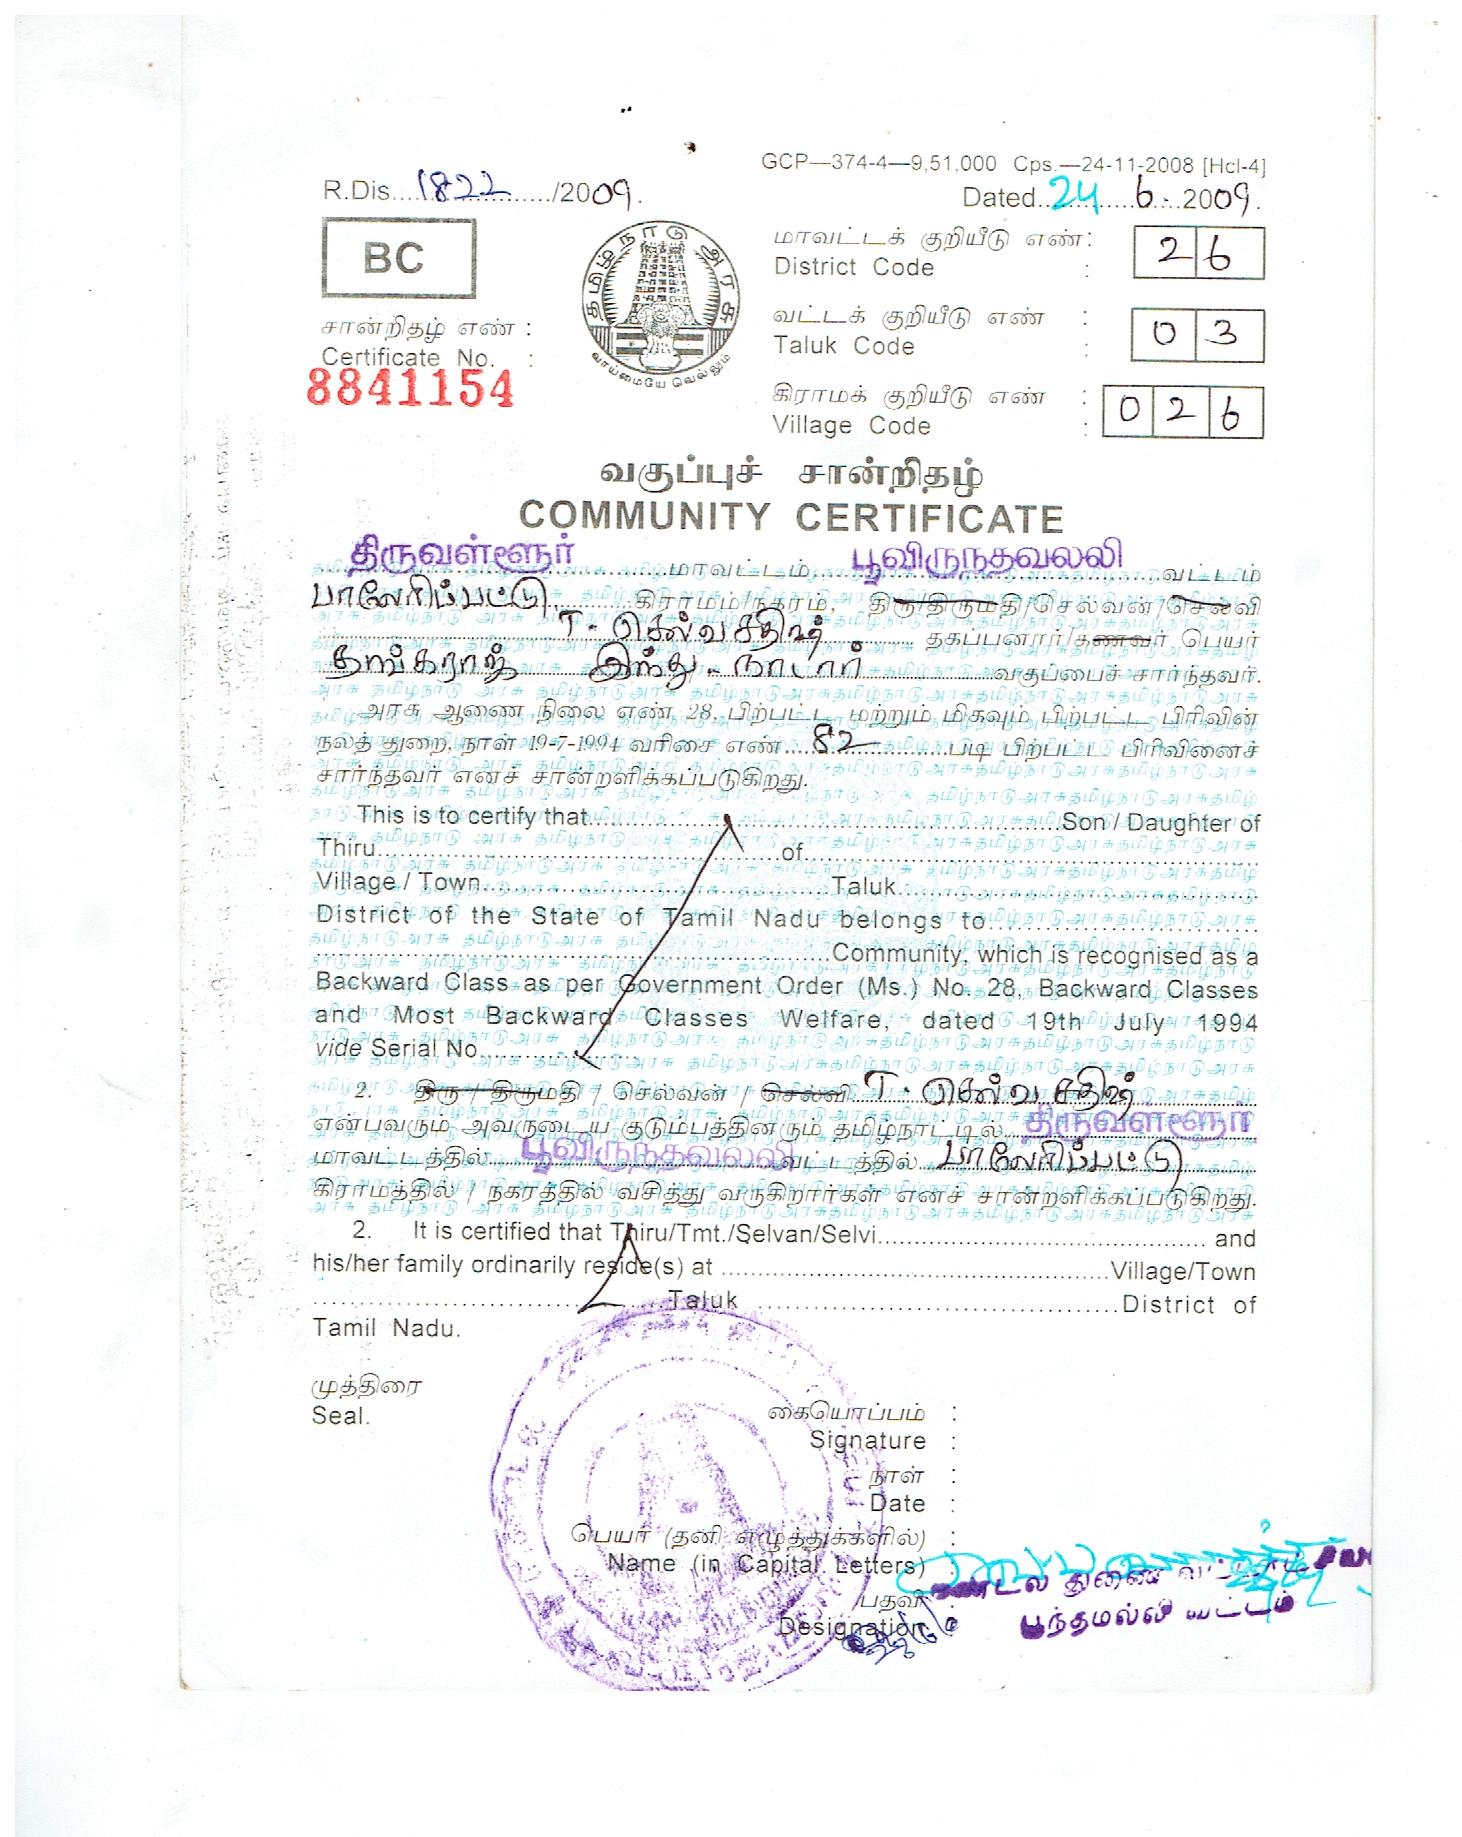 GCP—374-4—9,51,000 Cps.—24-11-2008 [Hcl-4]
R.Dis....1822............/2009.
Dated..24....6...2009.
BC
தமிழ்நாடு அரசு
வாய்மையே வெல்லும்
மாவட்டக் குறியீடு எண் : 26
District Code :
சான்றிதழ் எண் :
Certificate No. :
8841154
வட்டக் குறியீடு எண் : 03
Taluk Code :
கிராமக் குறியீடு எண் : 026
Village Code :
வகுப்புச் சான்றிதழ்
COMMUNITY CERTIFICATE
திருவள்ளூர் மாவட்டம் பூவிருந்தவல்லி வட்டம்
பாளேரிப்பட்டு கிராமம்/நகரம், திரு/திருமதி/செல்வன்/செல்வி
T. செல்வ சதிஷ் தகப்பனார்/கணவர் பெயர்
தங்கராஜ் இந்து - நாடார் வகுப்பைச் சார்ந்தவர்.
அரசு ஆணை நிலை எண் 28, பிற்பட்ட மற்றும் மிகவும் பிற்பட்ட பிரிவின்
நலத் துறை, நாள் 19-7-1994 வரிசை எண் 82 படி பிற்பட்ட பிரிவினைச்
சார்ந்தவர் எனச் சான்றளிக்கப்படுகிறது.
This is to certify that..........Son / Daughter of
Thiru..........of..........
Village / Town..........Taluk..........
District of the State of Tamil Nadu belongs to..........
..........Community, which is recognised as a
Backward Class as per Government Order (Ms.) No. 28, Backward Classes
and Most Backward Classes Welfare, dated 19th July 1994
vide Serial No..........
2. திரு / திருமதி / செல்வன் / செல்வி T. செல்வ சதிஷ்
என்பவரும் அவருடைய குடும்பத்தினரும் தமிழ்நாட்டில் திருவள்ளூர்
மாவட்டத்தில் பூவிருந்தவல்லி வட்டத்தில் பாளேரிப்பட்டு
கிராமத்தில் / நகரத்தில் வசித்து வருகிறார்கள் எனச் சான்றளிக்கப்படுகிறது.
2. It is certified that Thiru/Tmt./Selvan/Selvi.......... and
his/her family ordinarily reside(s) at ..........Village/Town
..........Taluk ..........District of
Tamil Nadu.
முத்திரை
Seal.
கையொப்பம் :
Signature :
நாள் :
Date :
பெயர் (தனி எழுத்துக்களில்) :
Name (in Capital Letters) :
பதவி :
Designation :
மண்டல துணை வட்டாட்சி
பூந்தமல்லி வட்டம்